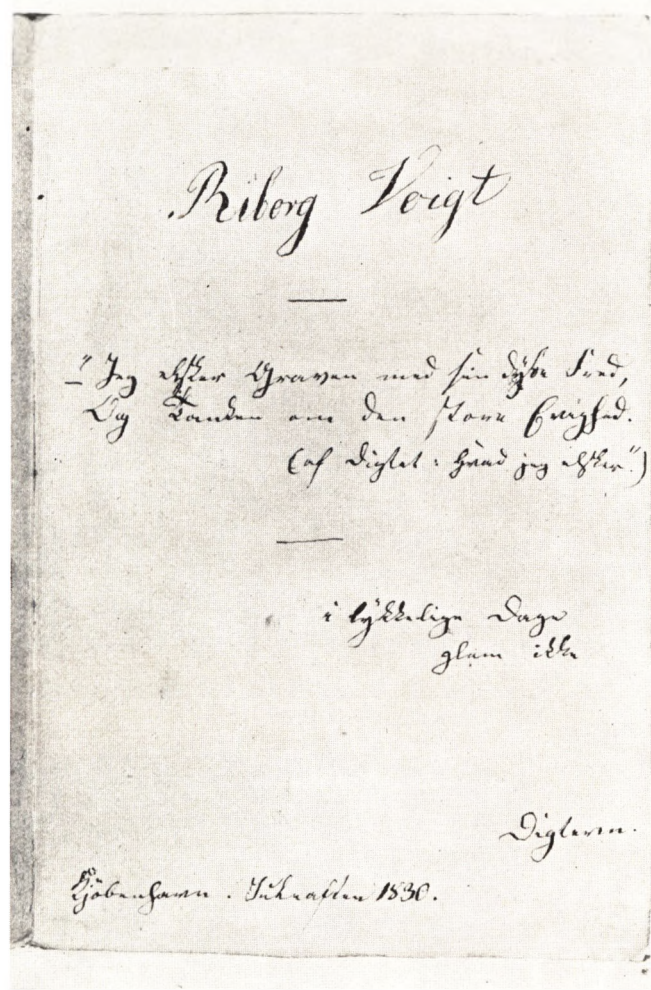 Riborg Voigt
"Jeg elsker Graven med sin dybe Fred,
Og Tanken om den store Evighed.
(af Digtet: Hvad jeg elsker".)
i lykkelige Dage
glem ikke
Digteren.
Kjöbenhavn. Juleaften 1830.